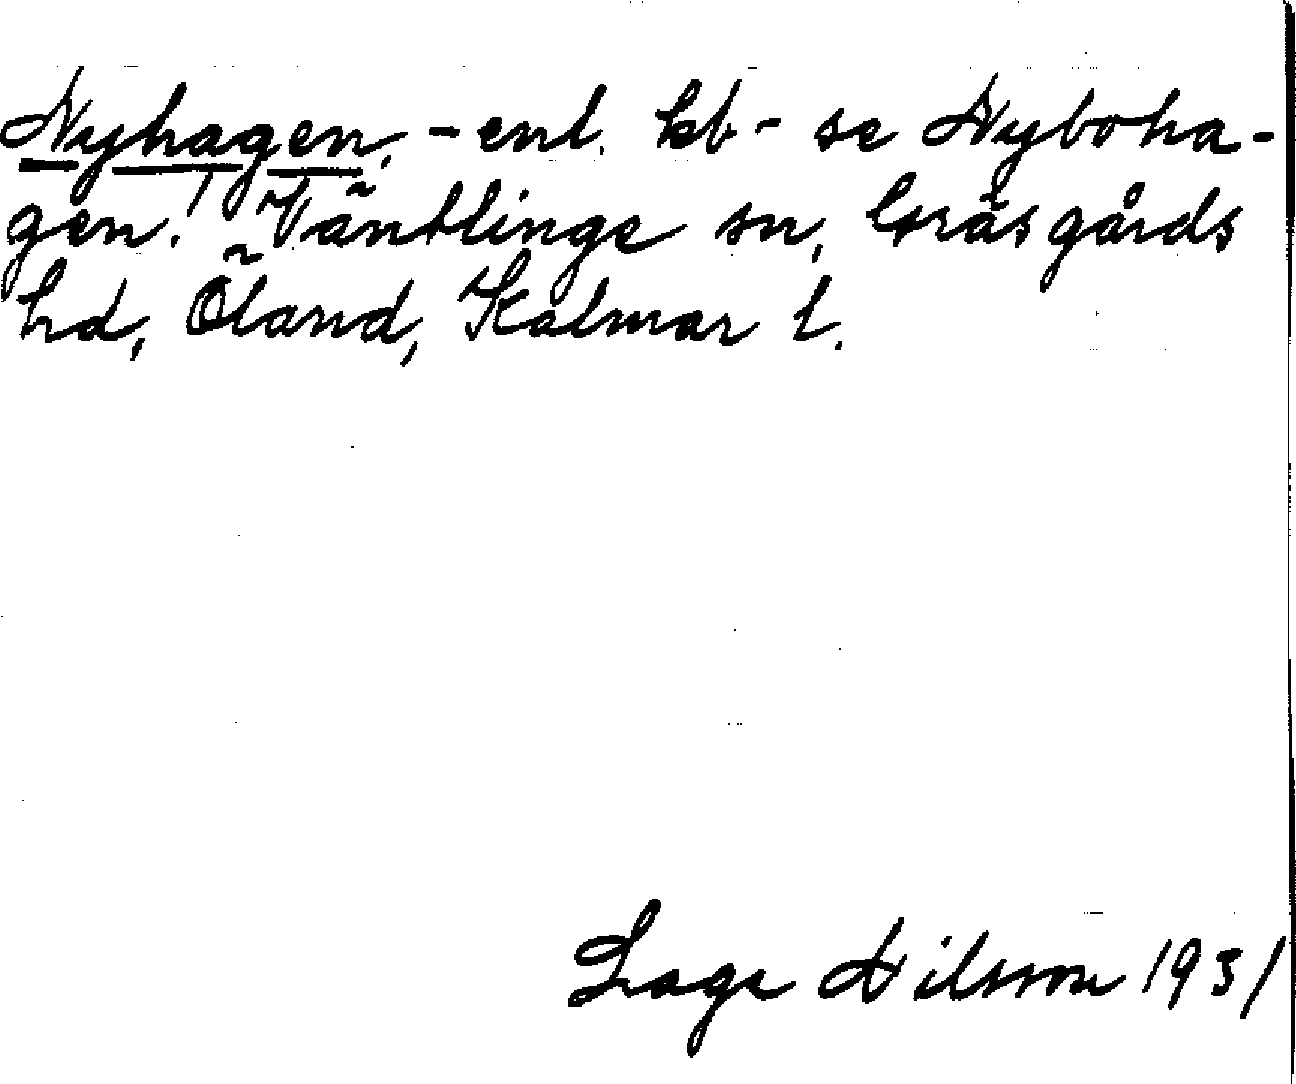 Nyhagen, - enl. kb - se Nyboha-
gen! Väntlinge sn, Gräsgårds
hd, Öland, Kalmar l.
Lage Nilsson 1931